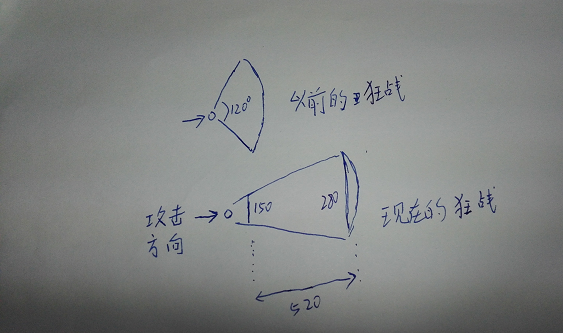 120°
以前的狂战
攻击
方向
150
280
现在的狂战
520